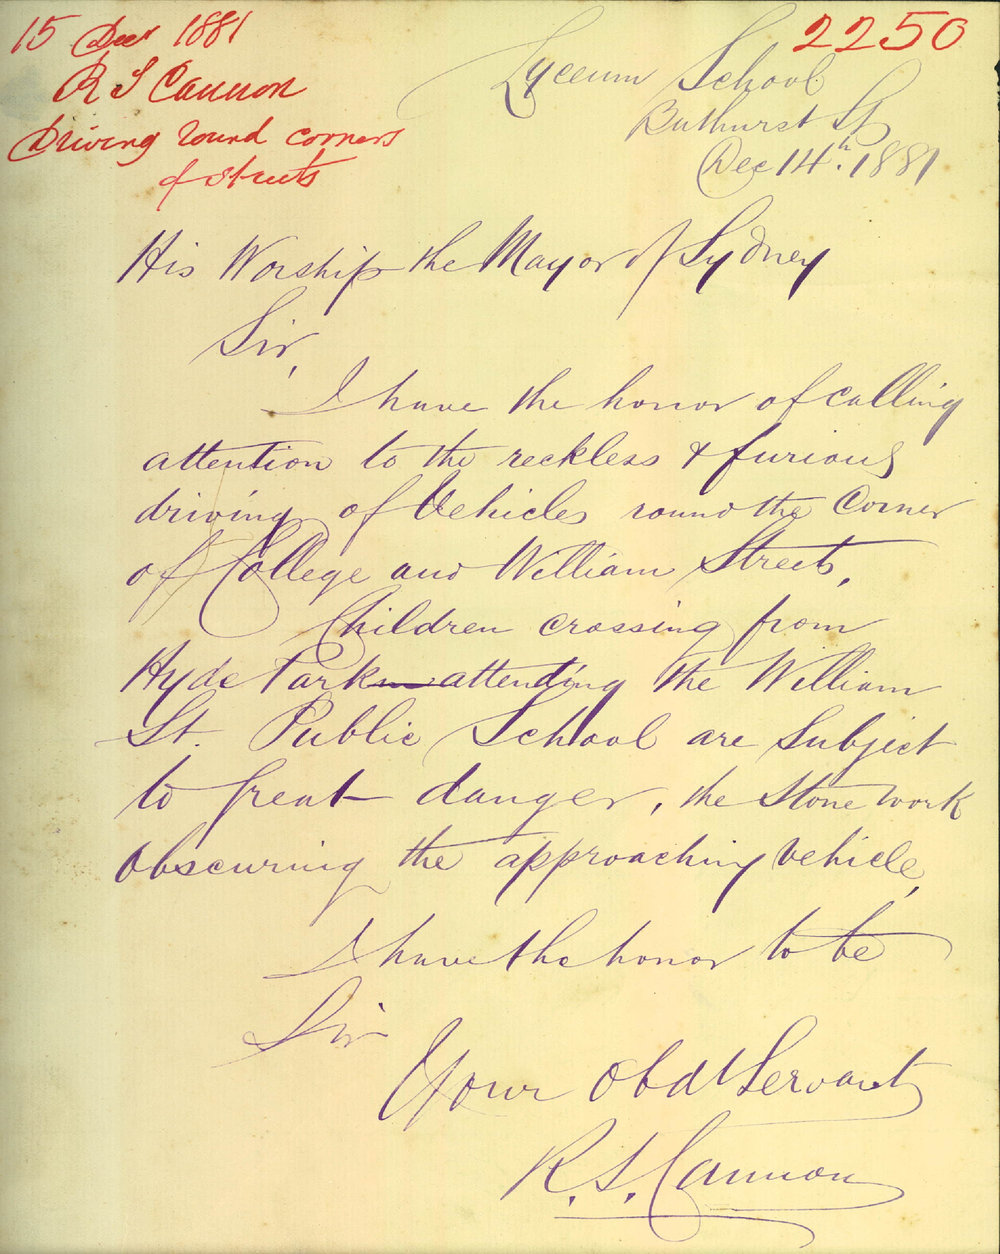 15 Decr 1881
R S Cannon
Driving round corners
of streets
2250
Lyceum School
Bathurst St
Dec 14th. 1881
His Worship the Mayor of Sydney
Sir,
I have the honor of calling
attention to the reckless & furious
driving of Vehicles round the Corner
of College and William Streets,
Children crossing from
Hyde Park attending the William
St. Public School are subject
to great danger, the stone work
obscuring the approaching vehicle,
I have the honor to be
Sir
Your obdt Servant
R. S. Cannon